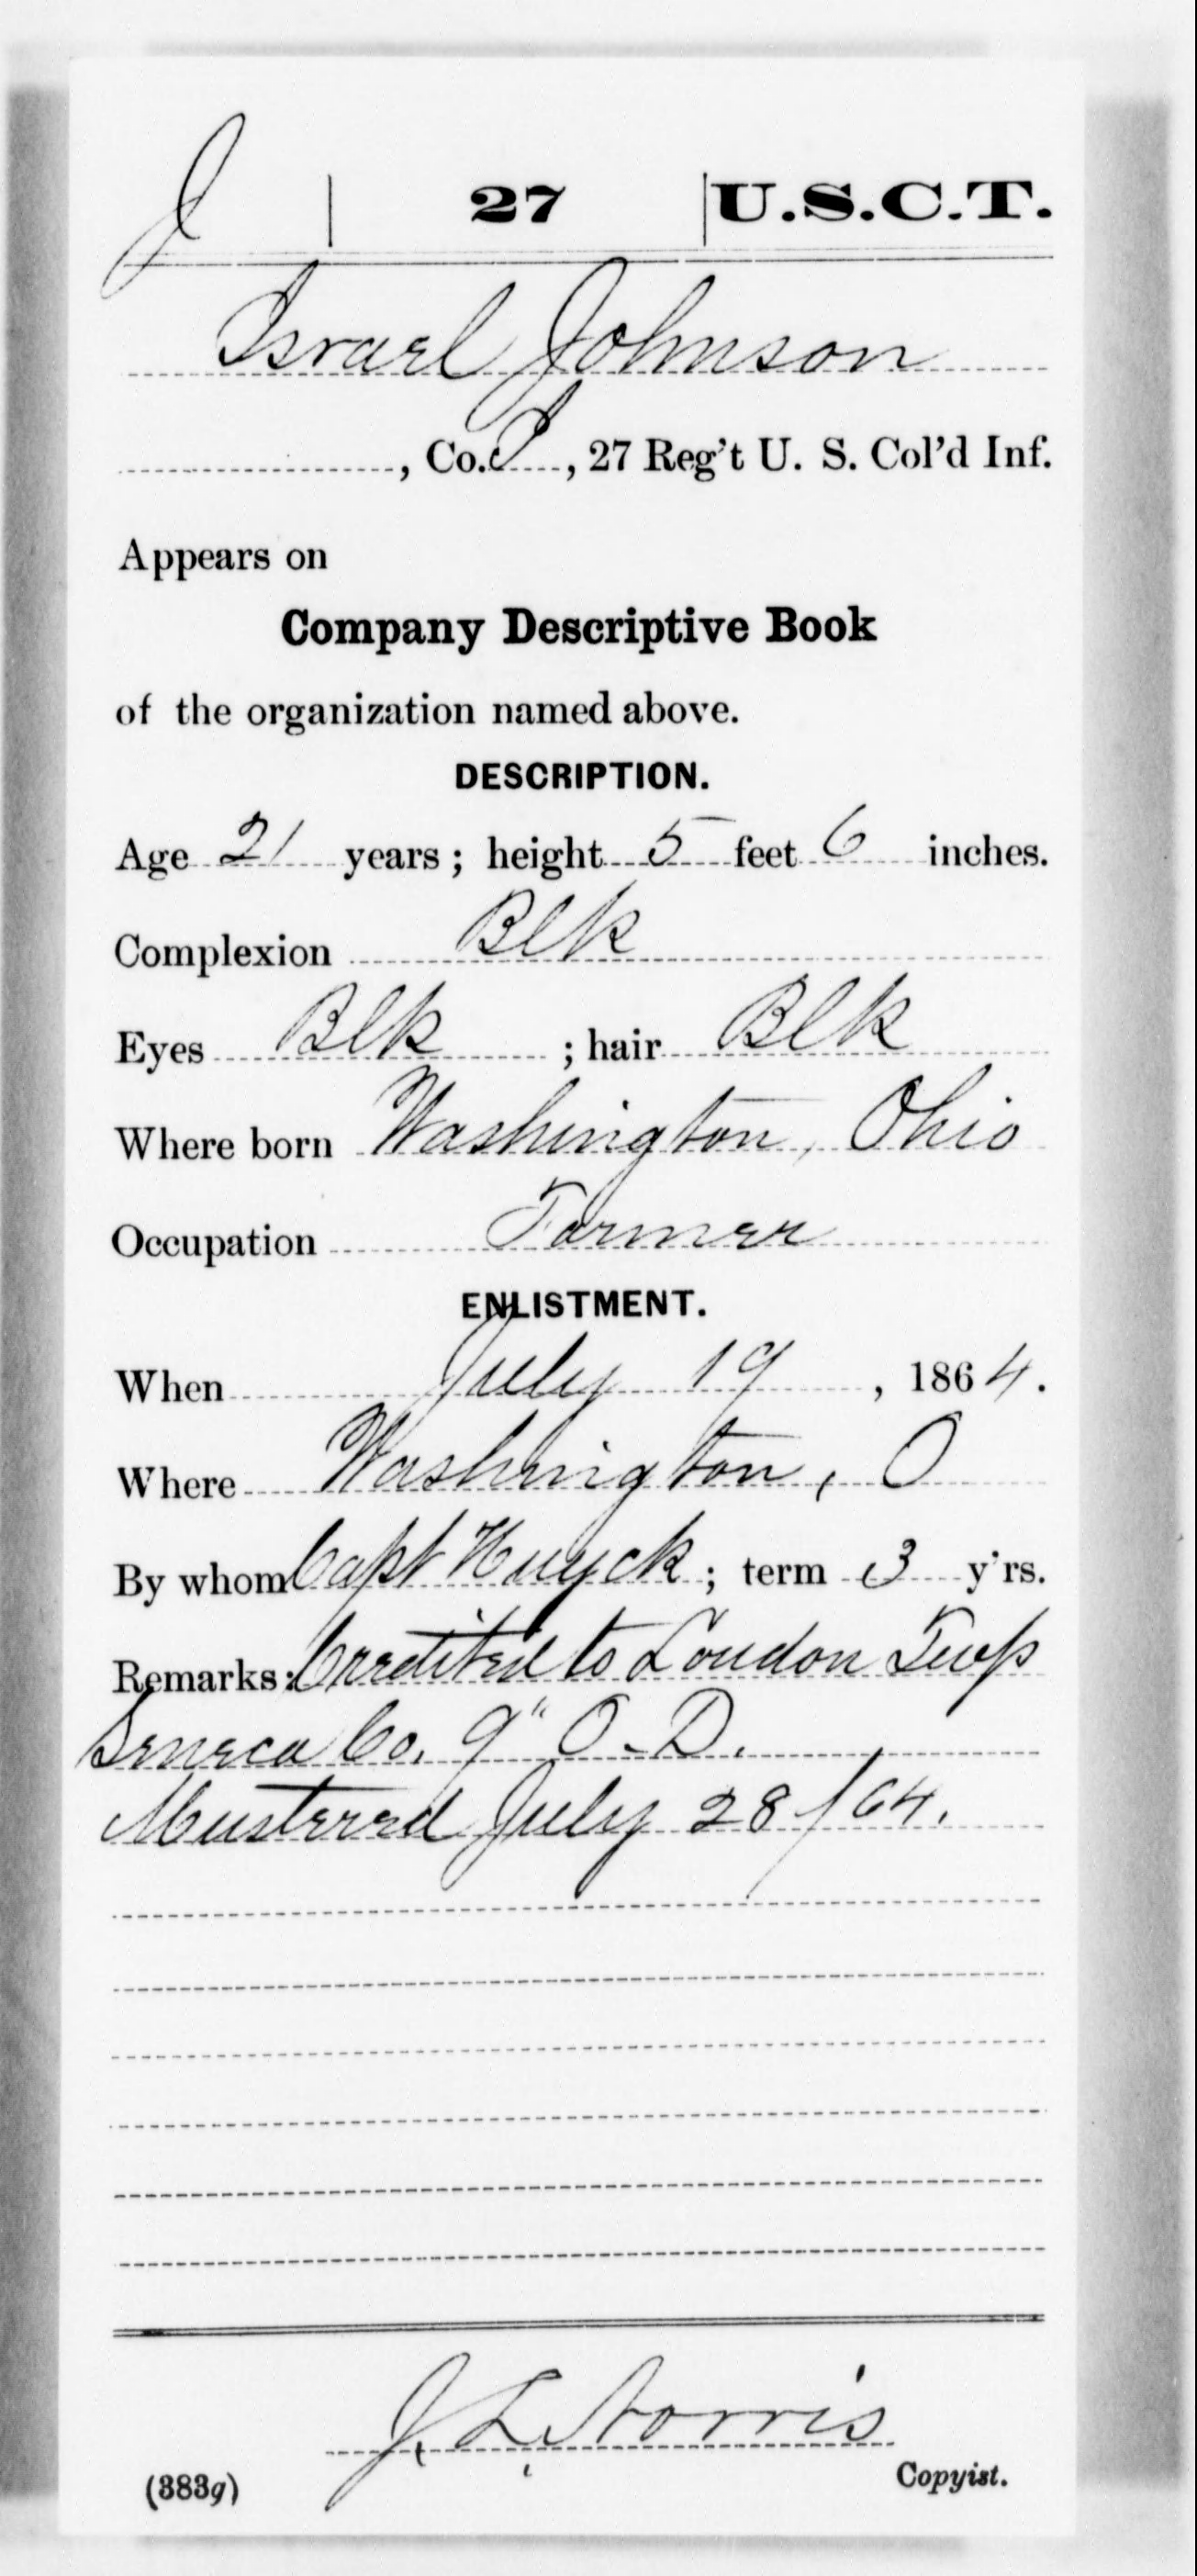 J | 27 | U.S.C.T.
Israel Johnson
, Co. I, 27 Reg't U. S. Col'd Inf.
Appears on
Company Descriptive Book
of the organization named above.
DESCRIPTION.
Age 21 years; height 5 feet 6 inches.
Complexion Blk
Eyes Blk ; hair Blk
Where born Washington, Ohio
Occupation Farmer
ENLISTMENT.
When July 19, 1864.
Where Washington, O
By whom Capt Huyck; term 3 y'rs.
Remarks: Credited to Loudon Twp
Seneca Co. 9" O-D.
Mustered July 28/64.
J. L. Norris
(383g) Copyist.